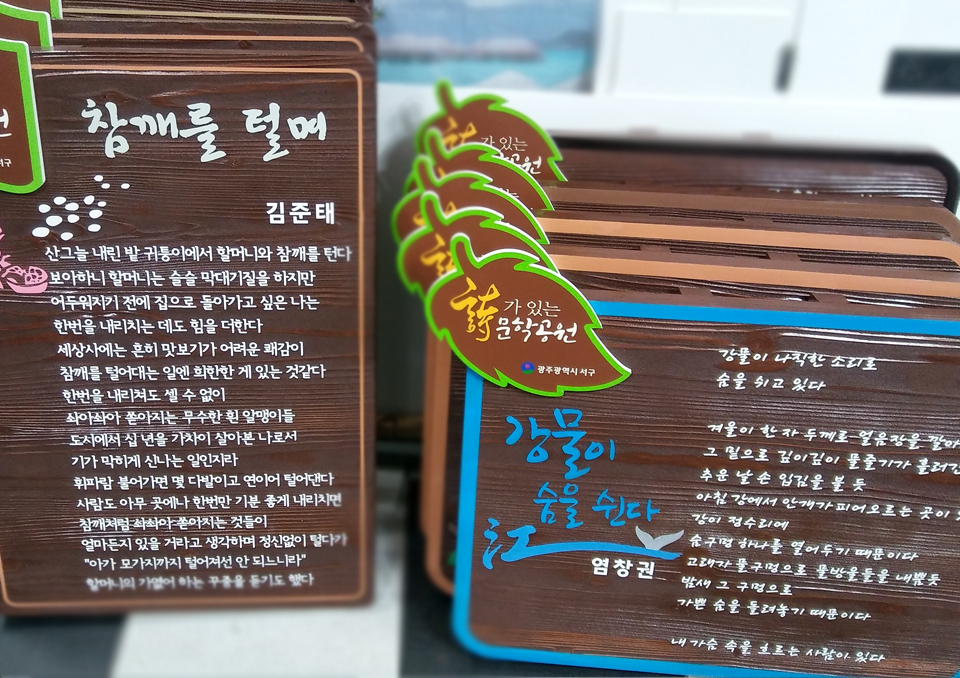 참깨를 털며
김준태
산그늘 내린 밭 귀퉁이에서 할머니와 참깨를 턴다
보아하니 할머니는 슬슬 막대기질을 하지만
어두워지기 전에 집으로 돌아가고 싶은 나는
한번을 내리치는 데도 힘을 더한다
세상사에는 흔히 맛보기가 어려운 쾌감이
참깨를 털어대는 일엔 희한한 게 있는 것같다
한번을 내리쳐도 셀 수 없이
솨아솨아 쏟아지는 무수한 흰 알맹이들
도시에서 십 년을 가차이 살아본 나로서
기가 막히게 신나는 일인지라
휘파람 불어가면 몇 다발이고 연이어 털어댄다
사람도 아무 곳에나 한번만 기분 좋게 내리치면
참깨처럼 솨아솨아 쏟아지는 것들이
얼마든지 있을 거라고 생각하며 정신없이 털다가
"아가 모가지까지 털어져선 안 되느니라"
할머니의 가엾어 하는 꾸중을 듣기도 했다
詩가 있는
문학공원
광주광역시 서구
강물이
숨을 쉰다
江
염창권
강물이 나직한 소리로
숨을 쉬고 있다
겨울이 한 자 두께로 얼음장을 깔아
그 밑으로 깊이깊이 물줄기가 흘러간
추운 날 손 입김을 불 듯
아침 강에서 안개가 피어오르는 곳이
강이 정수리에
숨구멍 하나를 열어두기 때문이다
고래가 물구멍으로 물방울들을 내뿜듯
밤새 그 구멍으로
가쁜 숨을 들려놓기 때문이다
내 가슴 속을 흐르는 사람이 있다